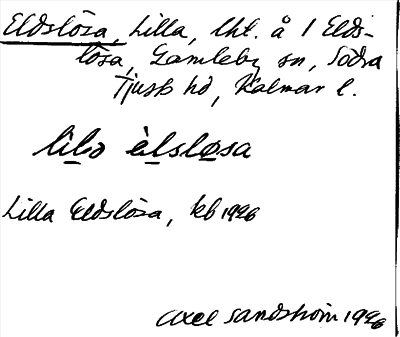 Eldslösa, Lilla, lht. å 1 Elds-
lösa, Gamleby sn, Södra
Tjusts hd, Kalmar l.
lìlə èlsløsa
Lilla Eldslösa, kb 1926
Axel Sandström 1926